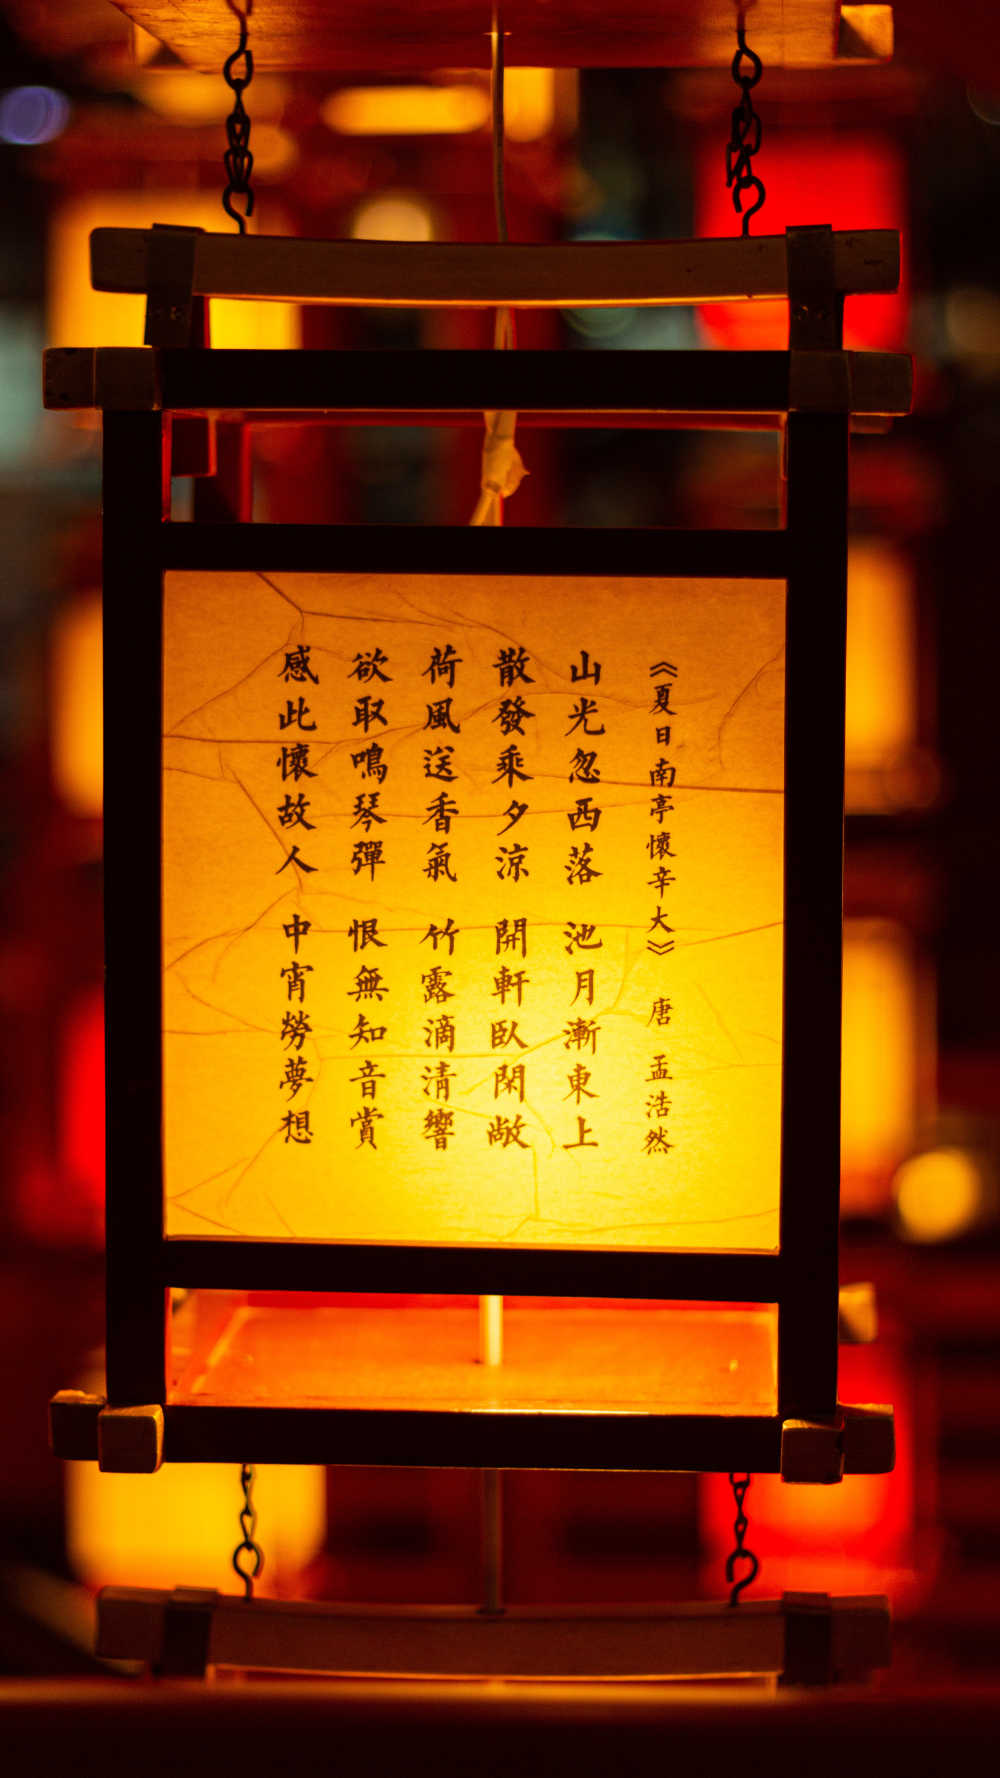 《夏日南亭懷辛大》 唐 孟浩然
山光忽西落 池月漸東上
散發乘夕涼 開軒臥閑敞
荷風送香氣 竹露滴清響
欲取鳴琴彈 恨無知音賞
感此懷故人 中宵勞夢想